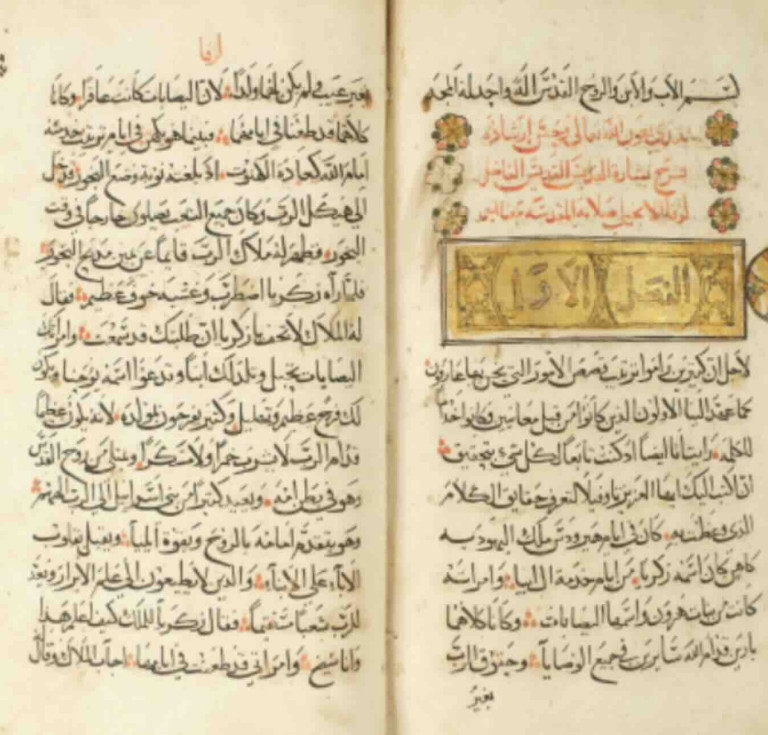 بسم الاب والابن والروح القدس الله واحد له المجد
نبتدي بعون الله تعالي وحسن ارشاده
بشرح بشارة القديس الفاضل
لوقا الانجيلي صلاته المقدسة معنا امين
الفصل الاول
لاجل ان كثيرين راموا ترتيب قصص الامور التي نحن بها عارفون
كما عهد الينا الاولون الذين كانوا من قبل معاينين وكانوا خداما
للكلمه رايت انا ايضا اذ كنت تابعا لكل شي بتحقيق
ان اكتب اليك ايها العزيز تاوفيلا لتعرف حقايق الكلام
الذي وعظت به كان في ايام هيرودس ملك اليهوديه
كاهن كان اسمه زكريا من ايام خدمة ال ابيا وامراته
كانت من بنات هرون واسمها اليصابات وكانا كلاهما
بارين قدام الله سايرين في جميع الوصايا وحقوق الرب
بغير
لوقا
بغير عيب ولم يكن لهما ولد لان اليصابات كانت عاقرا وكانا
كلاهما قد طعنا في ايامهما وبينما هو يكهن في ايام ترتيب خدمته
امام الله كعادة الكهنوت اذ بلغته نوبة وضع البخور فدخل
الي هيكل الرب وكان جميع الشعب يصلون خارجا في وقت
البخور فظهر له ملاك الرب قايما عن يمين مذبح البخور
فلما راه زكريا اضطرب وغشيه خوف عظيم فقال
له الملاك لا تخف يا زكريا ان طلبتك قد سمعت وامراتك
اليصابات تحبل وتلد لك ابنا وتدعوا اسمه يوحنا ويكون
لك فرح عظيم وتهليل وكثير يفرحون بمولده لانه يكون عظيما
قدام الرب لا يشرب خمرا ولا سكرا ويمتلي من روح القدس
وهو في بطن امه ويعيد كثيرا من بني اسراييل الي الرب الههم
وهو يتقدم امامه بالروح وبقوة ايليا ويقبل بقلوب
الابا علي الابنا والذين لا يطيعون الي علم الابرار ويعد
للرب شعبا مستقيما فقال زكريا للملاك كيف اعلم هذا
وانا شيخ وامراتي قد طعنت في ايامها اجاب الملاك وقال